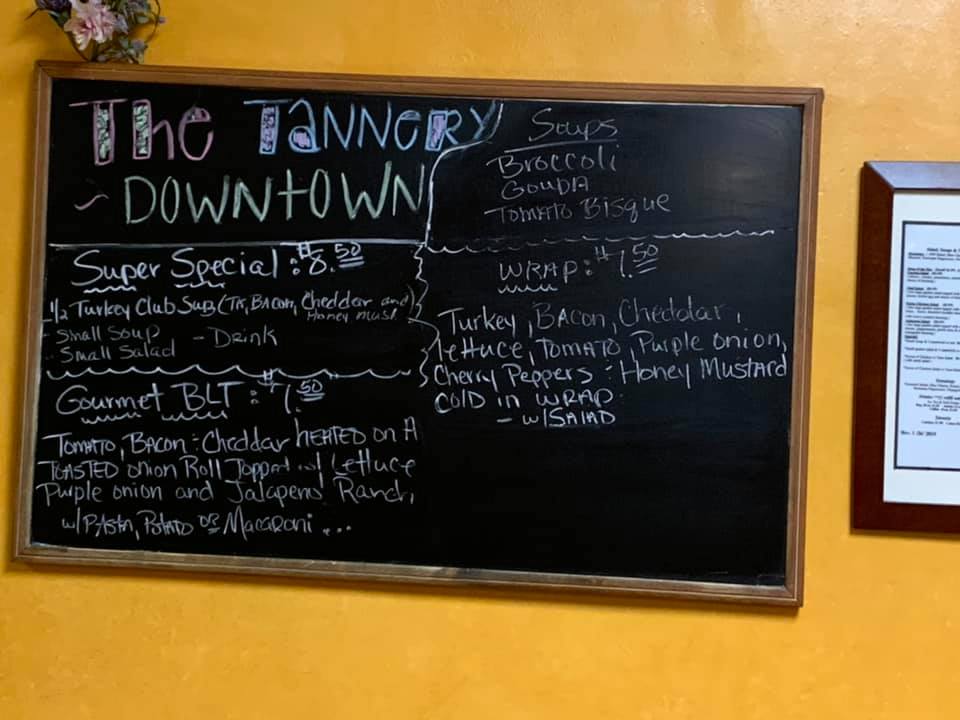 The TANNERY
~ DOWNtOWN
Super Special : $8.50
1/2 Turkey Club Sub (TK, Bacon, Cheddar and
Honey Must.
- Small Soup - Drink
- Small Salad
Gourmet BLT : $7.50
TOMATO, BACON - Cheddar HEATED ON A
TOASTED ONION Roll Topped w/ Lettuce
Purple onion and Jalapeno Ranch,
w/ PASTA, POTATO OR MACARONI ...
Soups
Broccoli
GOUDA
TOMATO BISQUE
WRAP : $7.50
Turkey, BACON, Cheddar,
lettuce, TOMATO, Purple onion,
Cherry Peppers - Honey Mustard
COLD in WRAP.
- w/SALAD